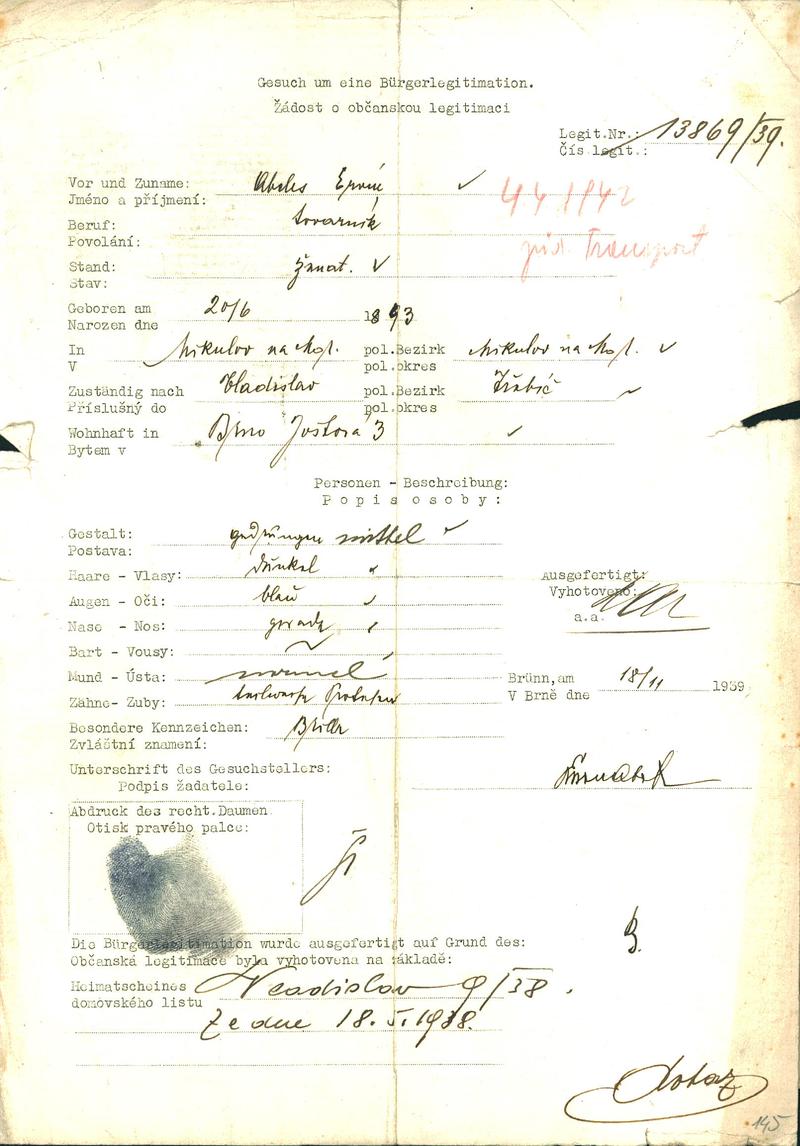 Gesuch um eine Bürgerlegitimation.
Žádost o občanskou legitimaci
Legit.Nr.: 13869/39.
Čís legit.:
Vor und Zuname: Abeles Ervín
Jméno a příjmení:
Beruf: továrník
Povolání:
Stand: ženat.
Stav:
Transport
Geboren am 20/6 1893
Narozen dne
In Mikulov na Mor. pol.Bezirk Mikulov na Mor.
V pol.okres
Zuständig nach Vladislav pol.Bezirk Třebíč
Příslušný do pol.okres
Wohnhaft in Brno Joštova 3
Bytem v
Personen - Beschreibung:
Popis osoby:
Gestalt: gedrungen mittel
Postava:
Haare - Vlasy: dunkel
Augen - Oči: blau
Nase - Nos: gerade
Bart - Vousy:
Mund - Ústa: normal
Zähne- Zuby: teilweise Prothesen
Ausgefertigt:
Vyhotoveno:
a.a.
Brünn,am 18/11 1939
V Brně dne
Besondere Kennzeichen: Brille
Zvláštní znamení:
Unterschrift des Gesuchstellers:
Podpis žadatele:
Abdruck des recht.Daumen
Otisk pravého palce:
Die Bürgerlegitimation wurde ausgefertigt auf Grund des:
Občanská legitimace byla vyhotovena na základě:
Heimatscheines Vladislav 9/38.
domovského listu
Ze dne 18.5.1938.
145